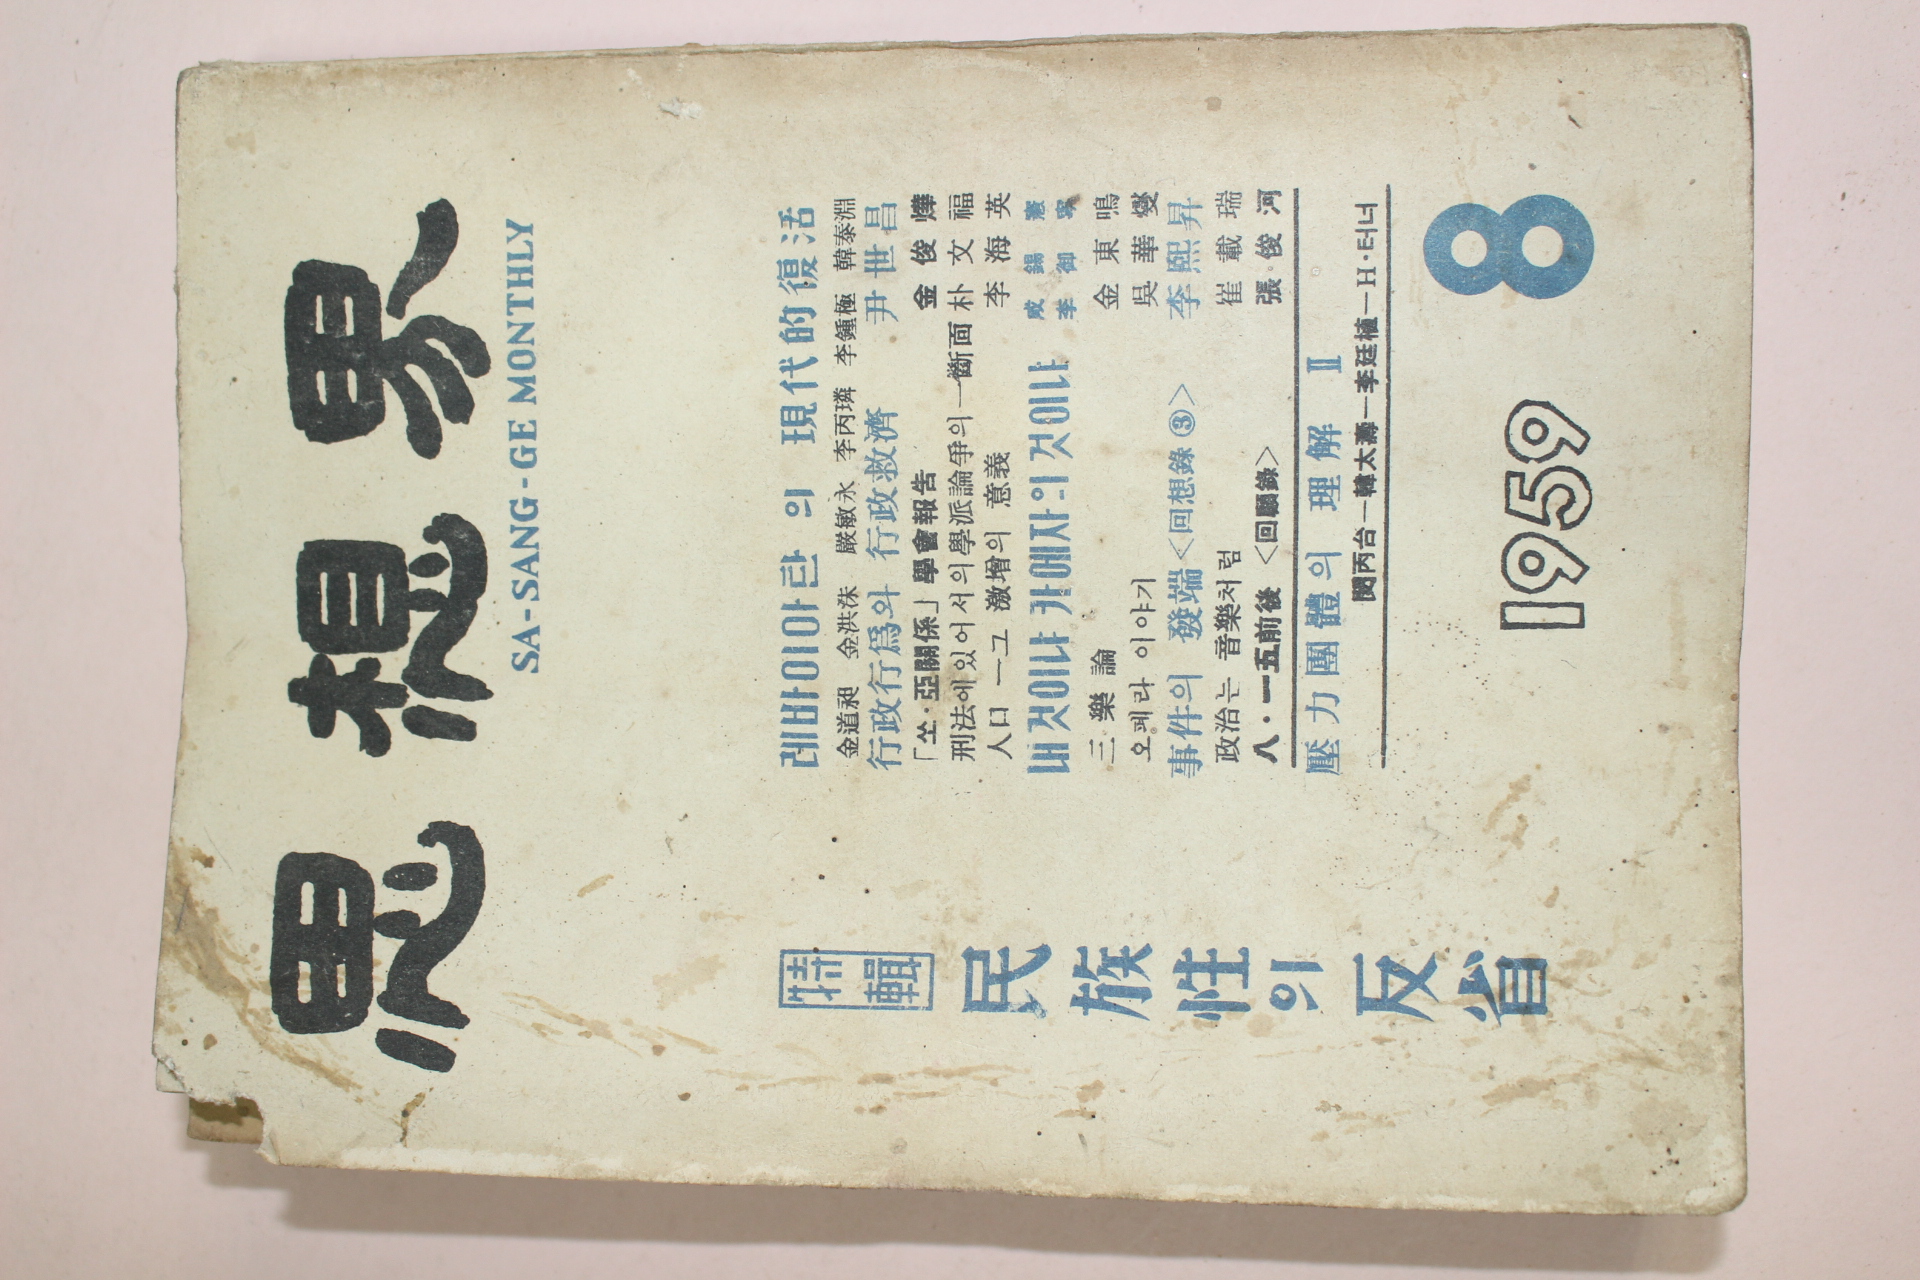 思想界
SA-SANG-GE MONTHLY
特輯
民族性의 反省
레바이아탄의 現代的復活
金道昶 金洪洙 嚴敏永 李丙璘 李鍾極 韓泰淵
行政行爲와 行政救濟 尹世昌
「쏘·亞關係」學會報告 金俊燁
刑法에 있어서의 學派論爭의 一斷面 朴文福
人口 ㅡ그 激增의 意義 李海英
내것이냐 카에자의 것이냐 成錫憲 李御寧
三樂論 金東鳴
오페라 이야기 吳華燮
事件의 發端<回想錄③> 李熙昇
政治는 音樂처럼 崔載瑞
八·一五前後 <回顧錄> 張俊河
壓力團體의 理解 Ⅱ
閔丙台—韓太壽—李廷植—H·터너
1959
8